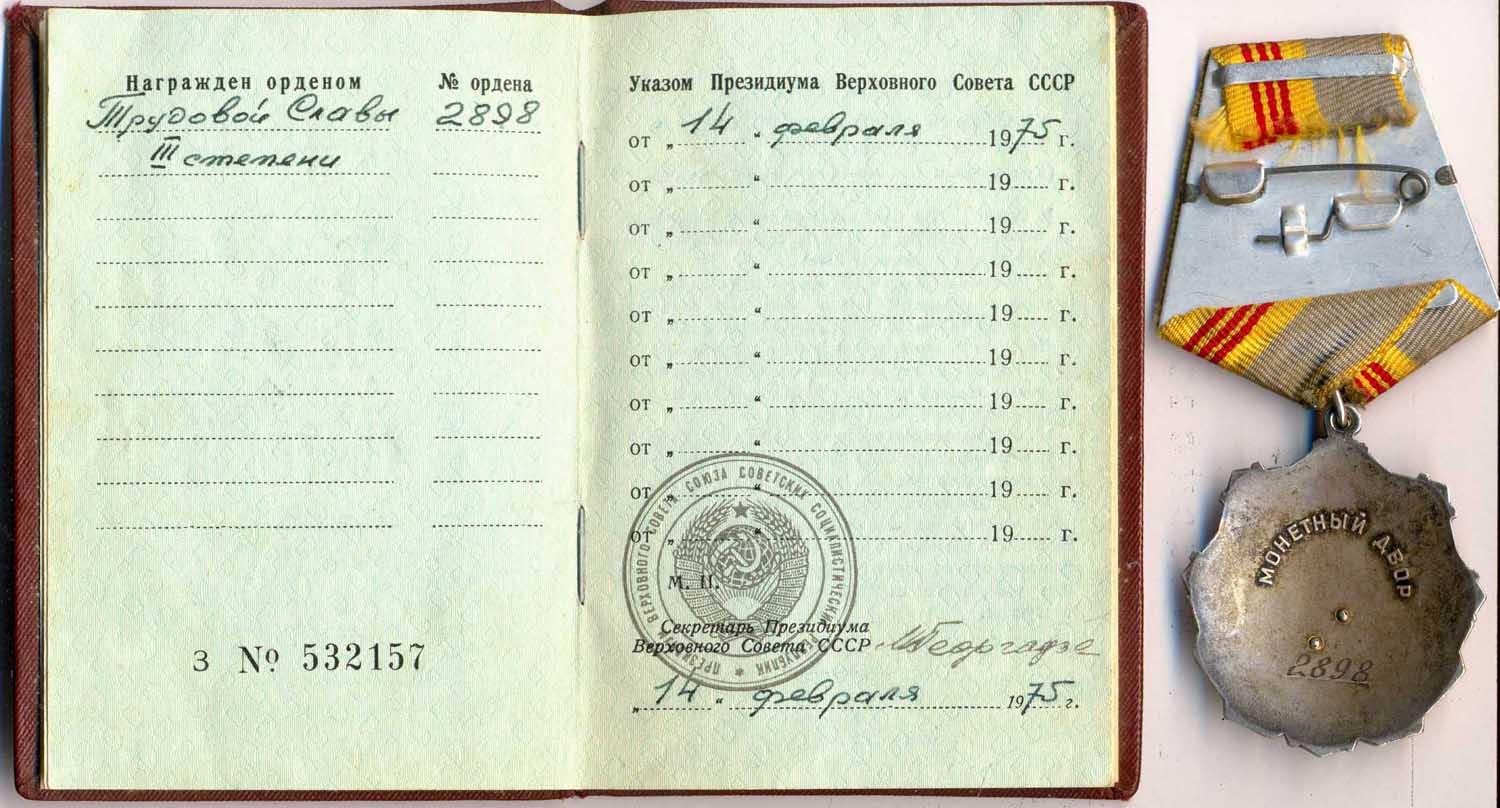 Награжден орденом № ордена
Трудовой Славы 2898
III степени
З № 532157
Указом Президиума Верховного Совета СССР
от „ 14 “ февраля 1975 г.
от „ “ 19 г.
от „ “ 19 г.
от „ “ 19 г.
от „ “ 19 г.
от „ “ 19 г.
от „ “ 19 г.
от „ “ 19 г.
от „ “ 19 г.
от „ “ 19 г.
ПРЕЗИДИУМ ВЕРХОВНОГО СОВЕТА СОЮЗА СОВЕТСКИХ СОЦИАЛИСТИЧЕСКИХ РЕСПУБЛИК
М. П.
Секретарь Президиума
Верховного Совета СССР МГеоргадзе
„ 14 “ февраля 1975 г.
МОНЕТНЫЙ ДВОР
2898